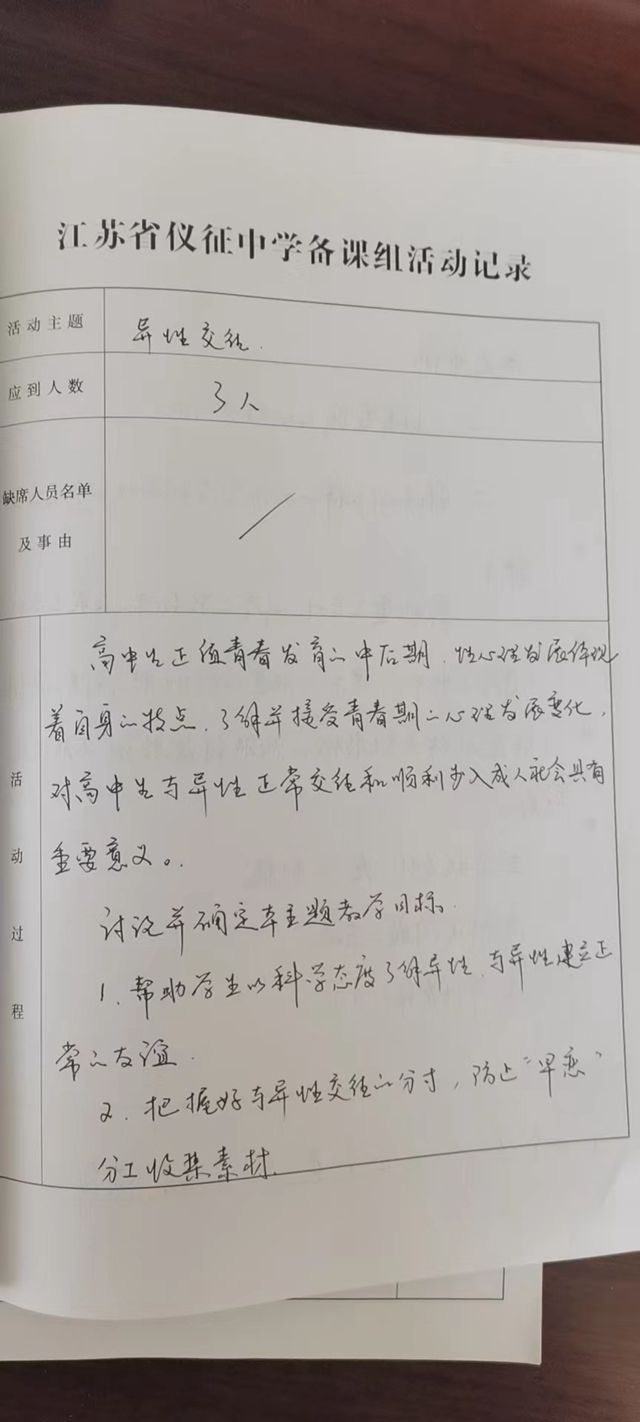 江苏省仪征中学备课组活动记录
活动主题
异性交往.
应到人数
3人
缺席人员名单
及事由
/
活动过程
高中生正值青春发育的中后期.性心理发展体现
着自身的特点.了解并接受青春期的心理发展变化,
对高中生与异性正常交往和顺利步入成人社会具有
重要意义。
讨论并确定本主题教学目标.
1.帮助学生以科学态度了解异性.与异性建立正
常的友谊.
2.把握好与异性交往的分寸,防止“早恋”
分工收集素材.